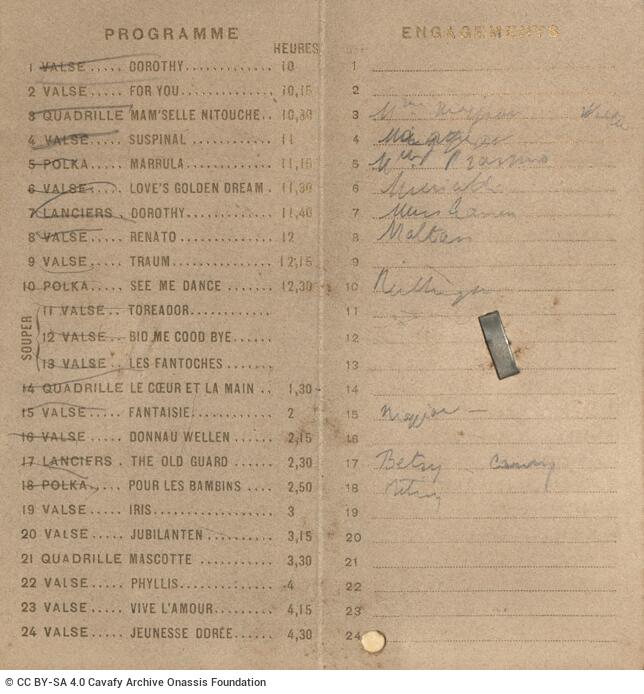 PROGRAMME
HEURES
1 VALSE..... DOROTHY............ 10
2 VALSE..... FOR YOU............. 10,15
3 QUADRILLE MAM'SELLE NITOUCHE.. 10,30
4 VALSE..... SUSPINAL ........... 11
5 POLKA..... MARRULA............ 11,15
6 VALSE..... LOVE'S GOLDEN DREAM . 11,30
7 LANCIERS . DOROTHY............ 11,40
8 VALSE..... RENATO ............ 12
9 VALSE..... TRAUM.............. 12,15
10 POLKA..... SEE ME DANCE ....... 12,30
SOUPER
11 VALSE.... TOREADOR...........
12 VALSE.... BID ME COOD BYE......
13 VALSE.... LES FANTOCHES.......
14 QUADRILLE LE CŒUR ET LA MAIN .. 1,30
15 VALSE..... FANTAISIE............ 2
16 VALSE..... DONNAU WELLEN ...... 2,15
17 LANCIERS . THE OLD GUARD ...... 2,30
18 POLKA..... POUR LES BAMBINS .... 2,50
19 VALSE..... IRIS................ 3
20 VALSE..... JUBILANTEN ......... 3,15
21 QUADRILLE MASCOTTE ........... 3,30
22 VALSE..... PHYLLIS............. 4
23 VALSE..... VIVE L'AMOUR........ 4,15
24 VALSE..... JEUNESSE DORÉE...... 4,30
ENGAGEMENTS
1
2
3
4
5
6
7
8 Maltass
9
10
11
12
13
14
15
16
17 Betsy
18 Betsy
19
20
21
22
23
24
© CC BY-SA 4.0 Cavafy Archive Onassis Foundation